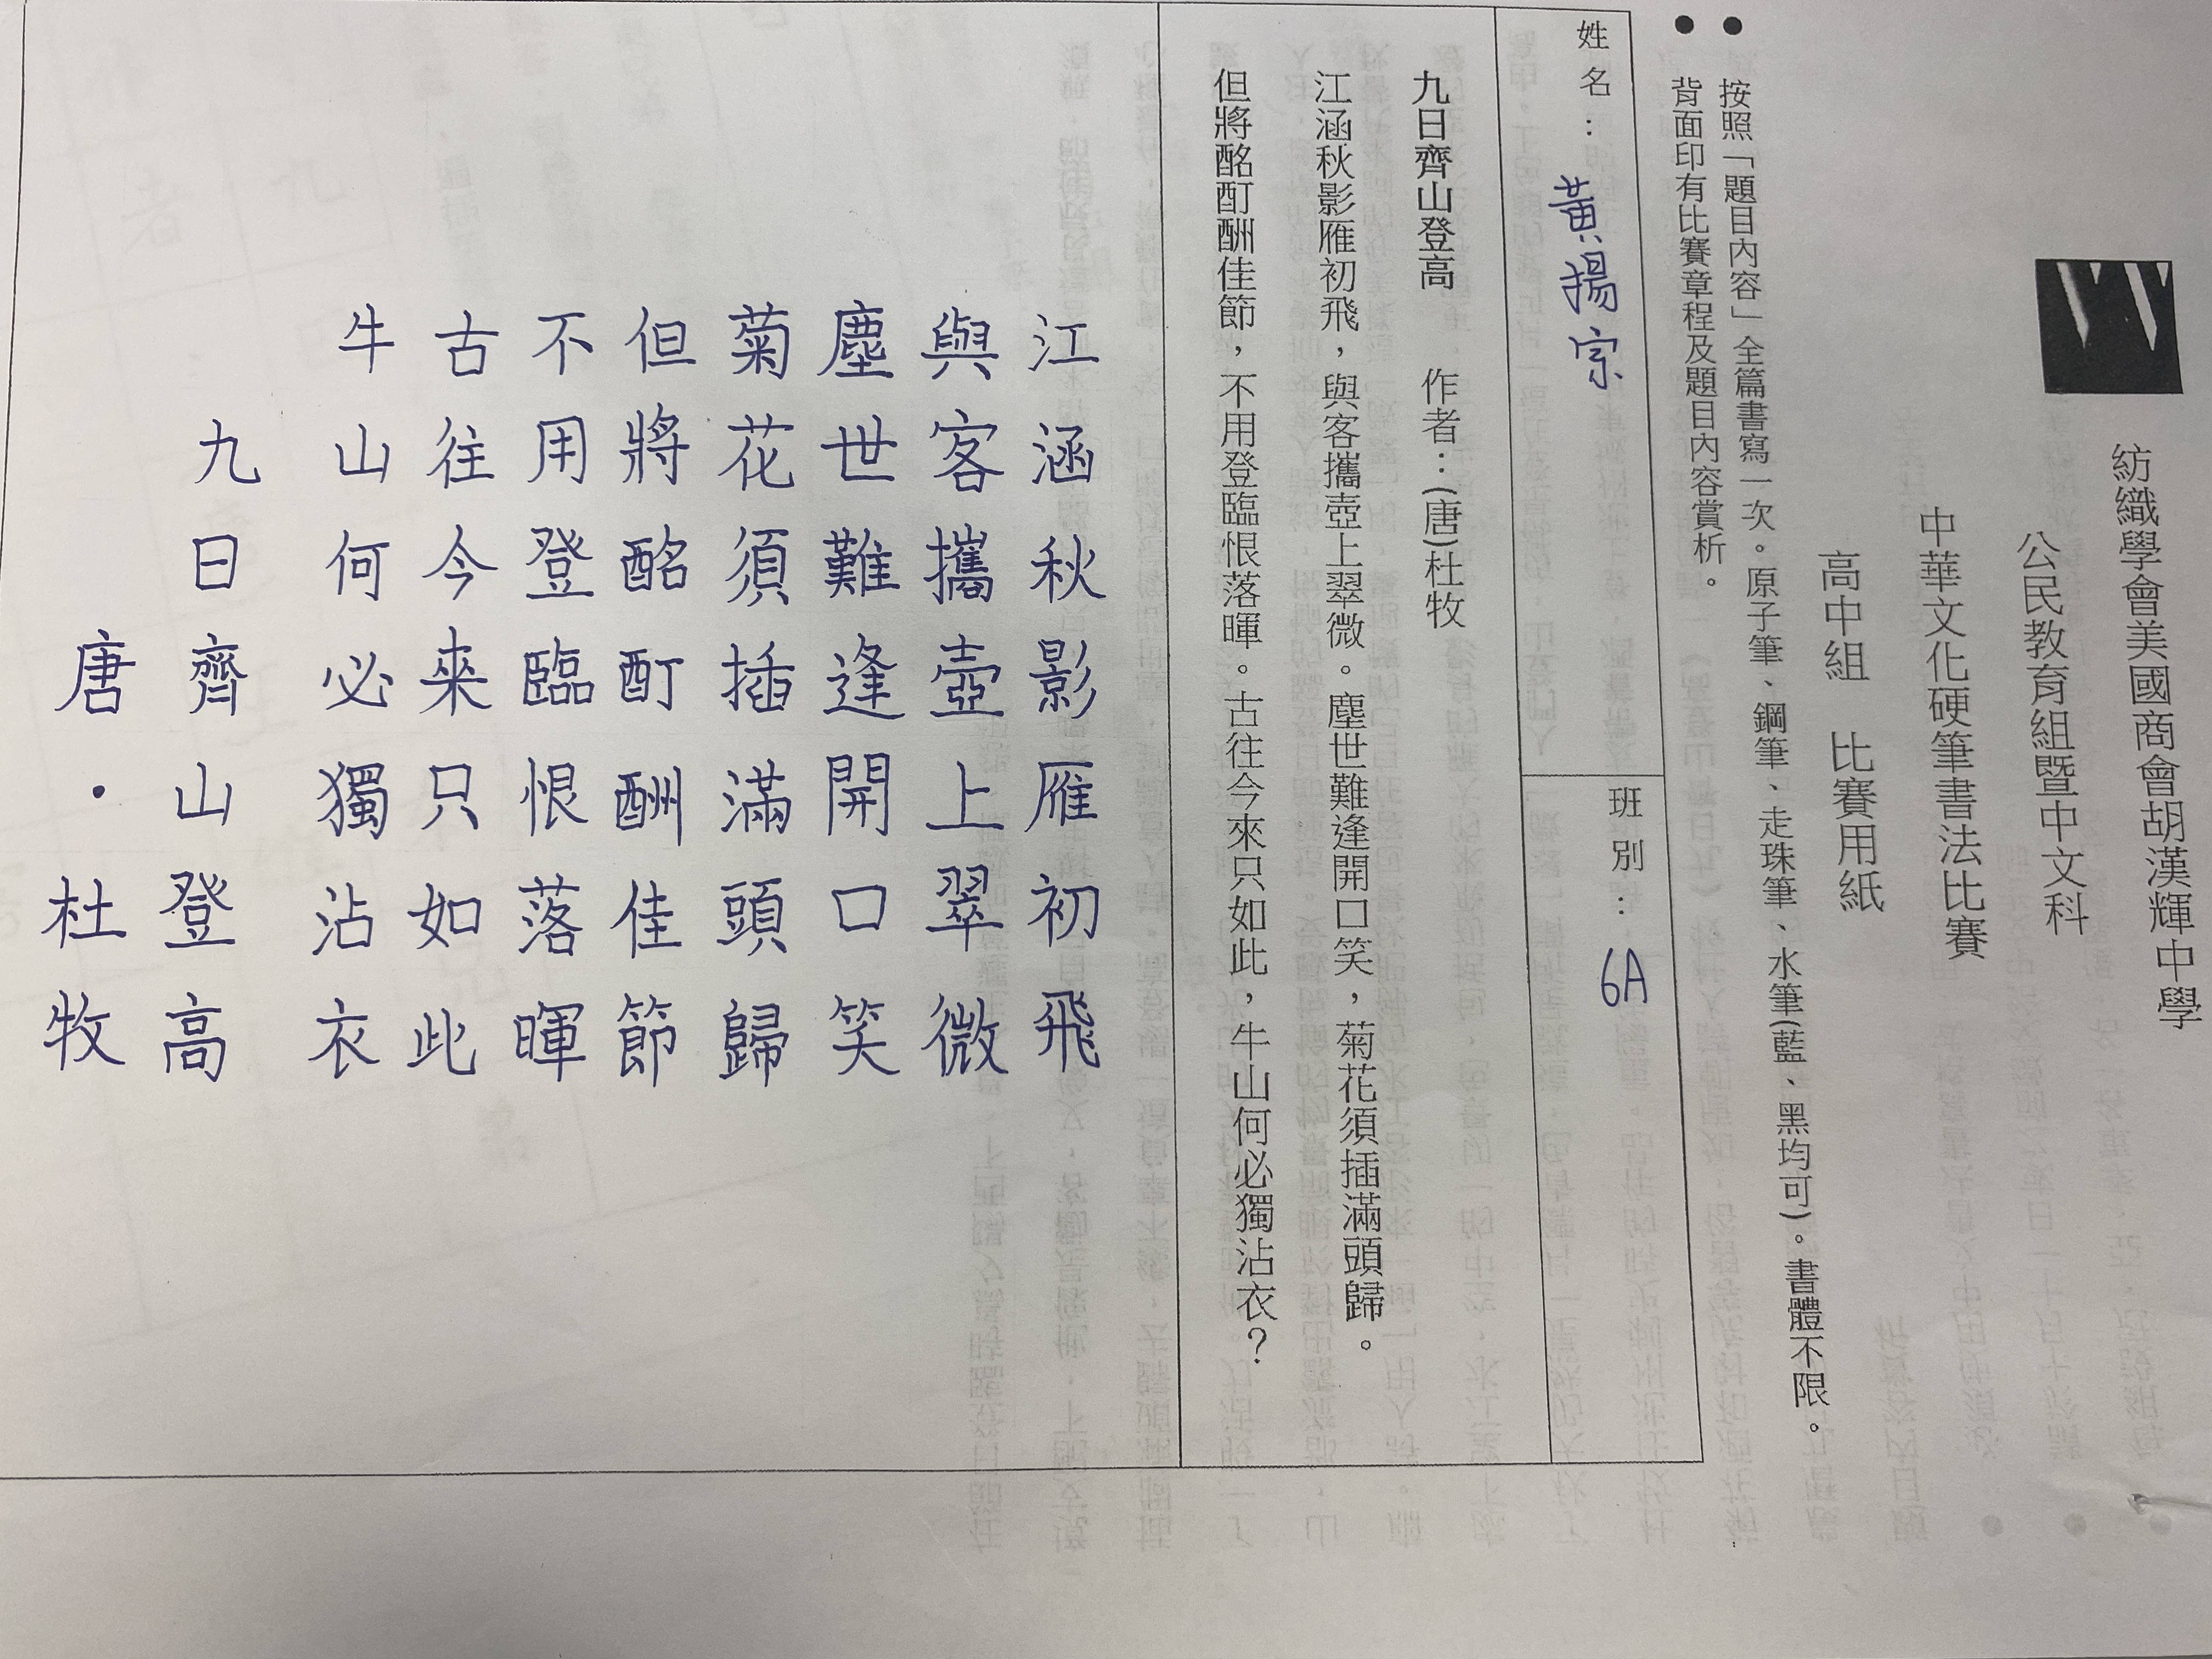 紡織學會美國商會胡漢輝中學
公民教育組暨中文科
中華文化硬筆書法比賽
高中組　比賽用紙
● 按照「題目內容」全篇書寫一次。原子筆、鋼筆、走珠筆、水筆(藍、黑均可)。書體不限。
● 背面印有比賽章程及題目內容賞析。
姓名：黃揚宗　班別：6A
九日齊山登高　作者：(唐)杜牧
江涵秋影雁初飛，與客攜壺上翠微。塵世難逢開口笑，菊花須插滿頭歸。
但將酩酊酬佳節，不用登臨恨落暉。古往今來只如此，牛山何必獨沾衣？
江涵秋影雁初飛
與客攜壺上翠微
塵世難逢開口笑
菊花須插滿頭歸
但將酩酊酬佳節
不用登臨恨落暉
古往今來只如此
牛山何必獨沾衣
九日齊山登高
唐・杜牧